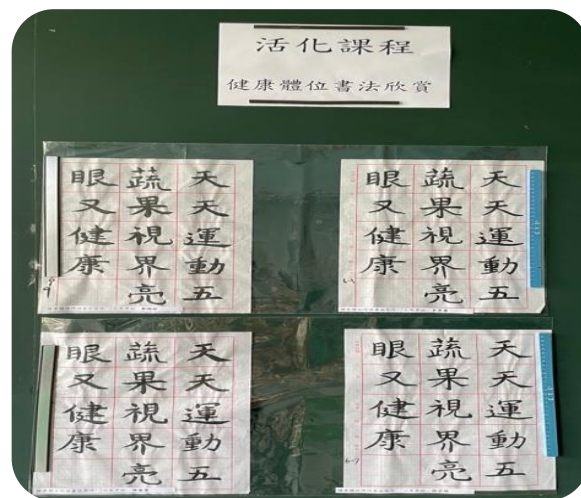 活化課程
健康體位書法欣賞
天天運動五
蔬果視界亮
眼又健康
天天運動五
蔬果視界亮
眼又健康
天天運動五
蔬果視界亮
眼又健康
天天運動五
蔬果視界亮
眼又健康